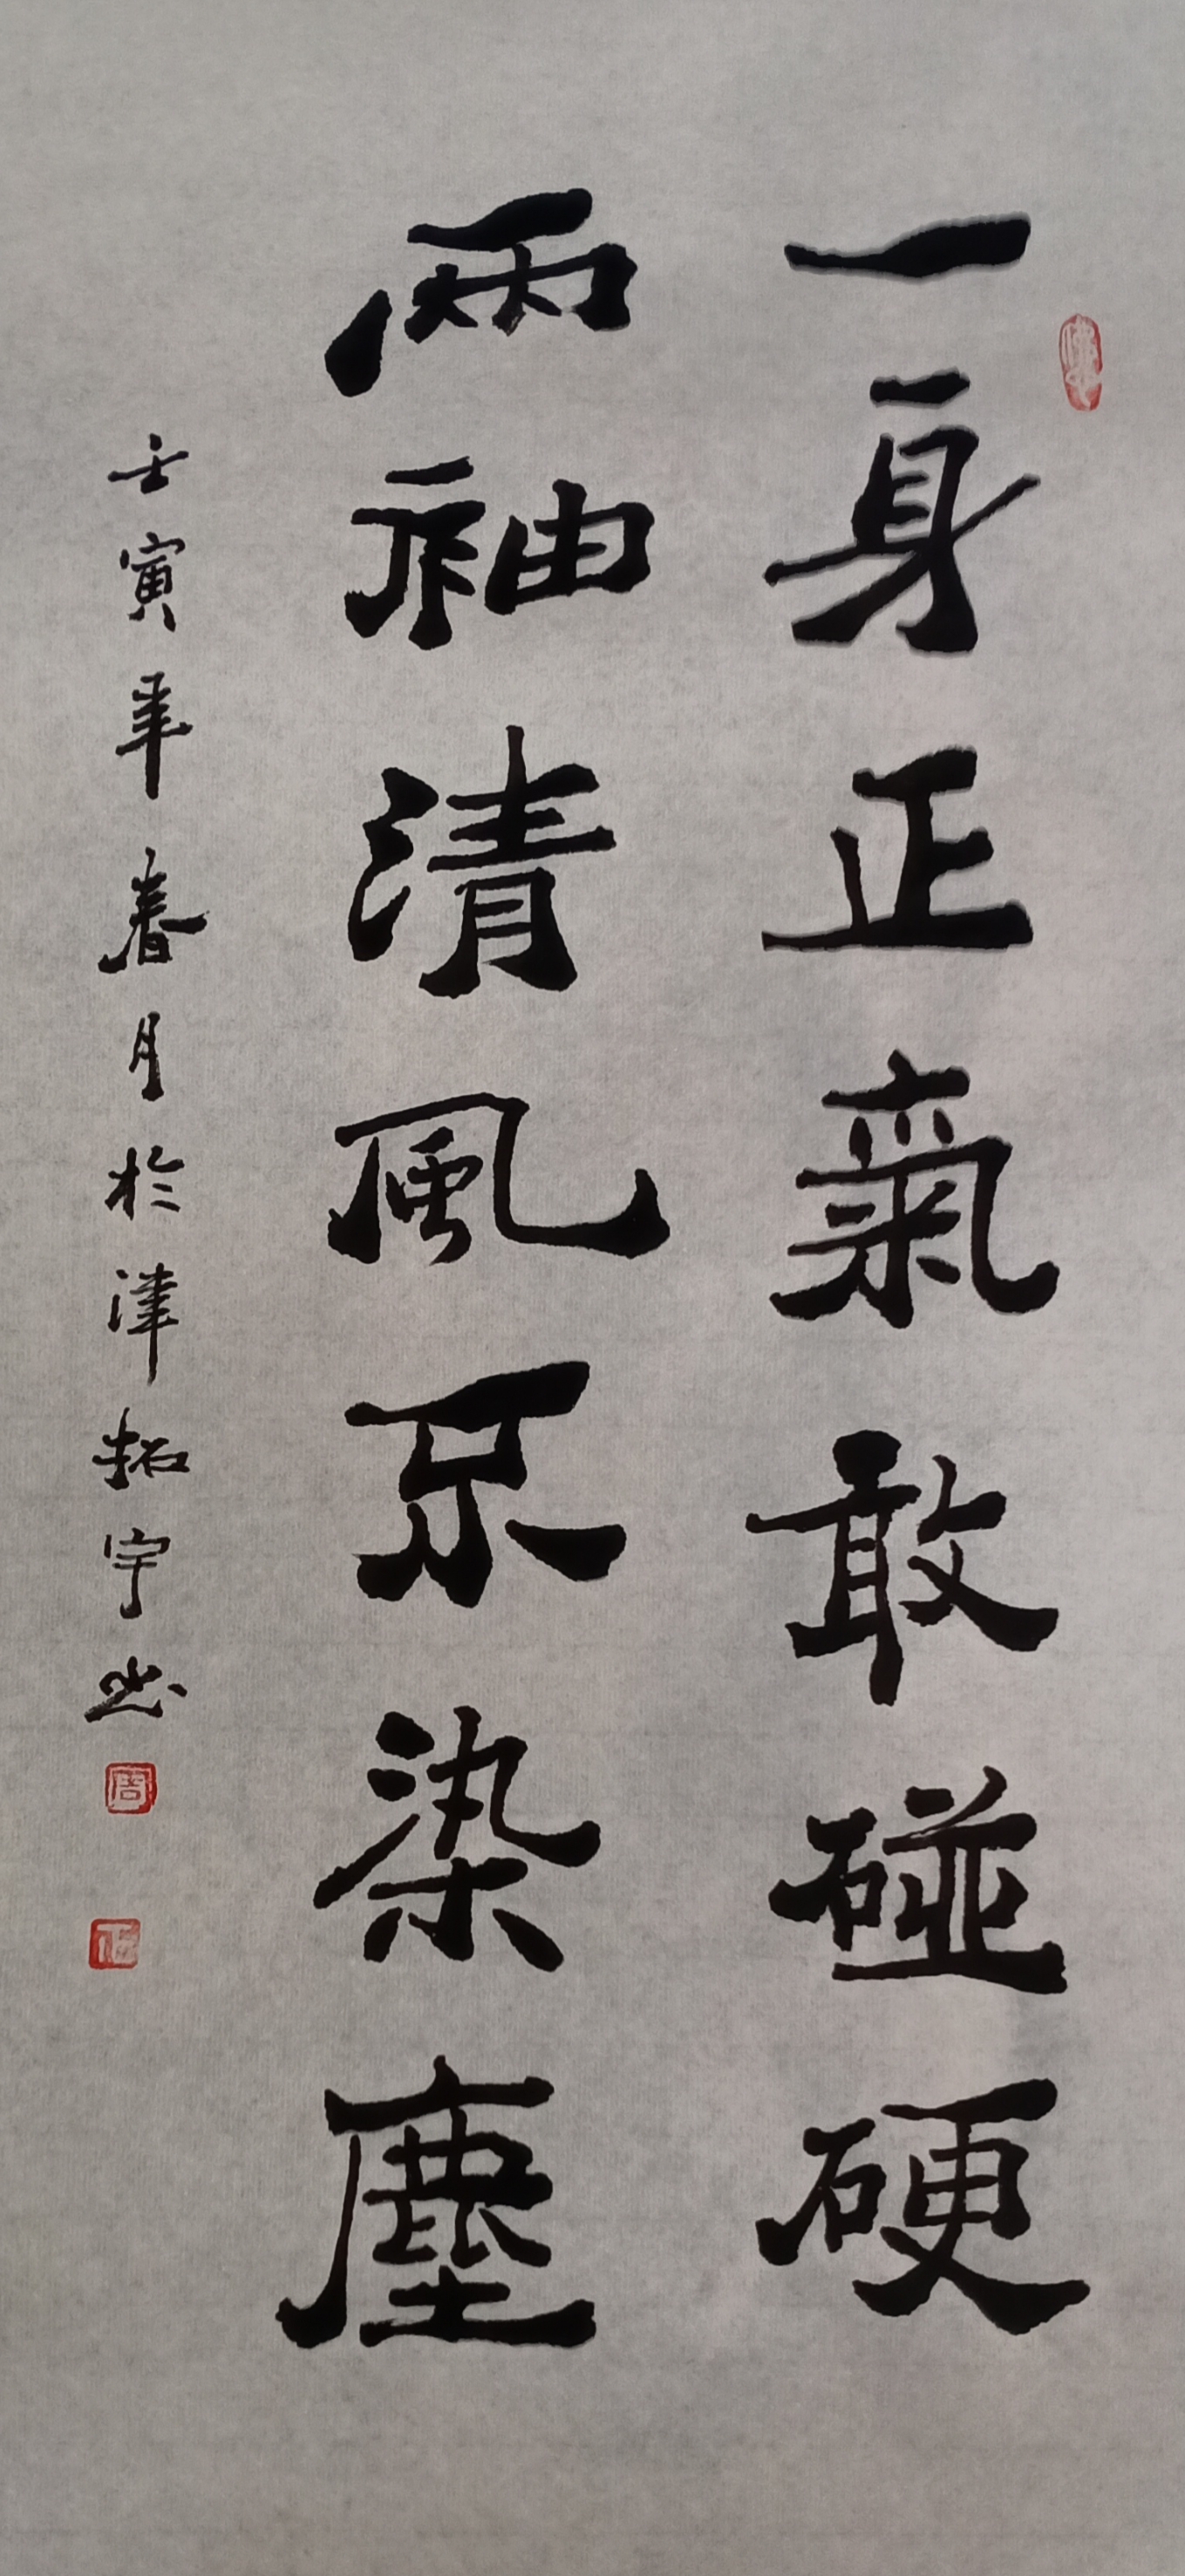 一身正氣敢碰硬
兩袖清風不染塵
壬寅年春月於津拓宇書